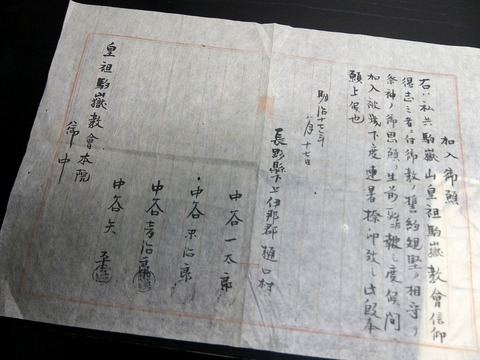 加入御願
右ハ私共駒嶽山皇祖駒嶽教會信仰
得志之者ニ付御教ノ誓約堅ク相守リ
祭神ノ御恩頼ヲ生前死後報シ度候間
加入被成下度連署捺印致シ此段奉
願上候也
明治十七年
八月十七日
長野縣下上伊那郡樋口村
中谷一太郎
中谷忠治郎
中谷音治郎
中谷矢
皇祖駒嶽教會本院
御中